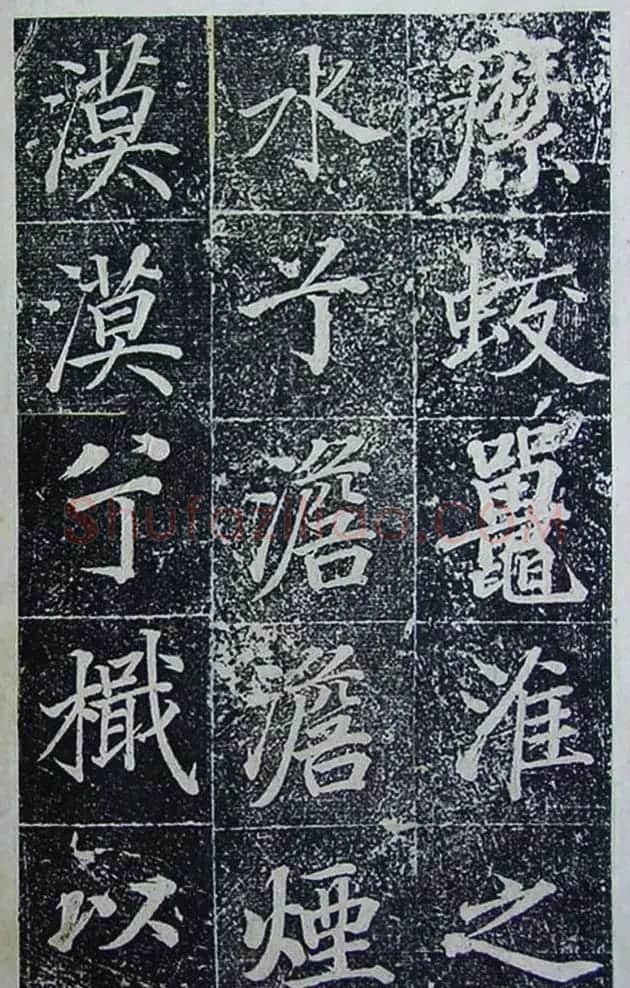 蛟鼉淮之
水兮澹澹煙
漠漠兮檝以
Shufaziliao.COM